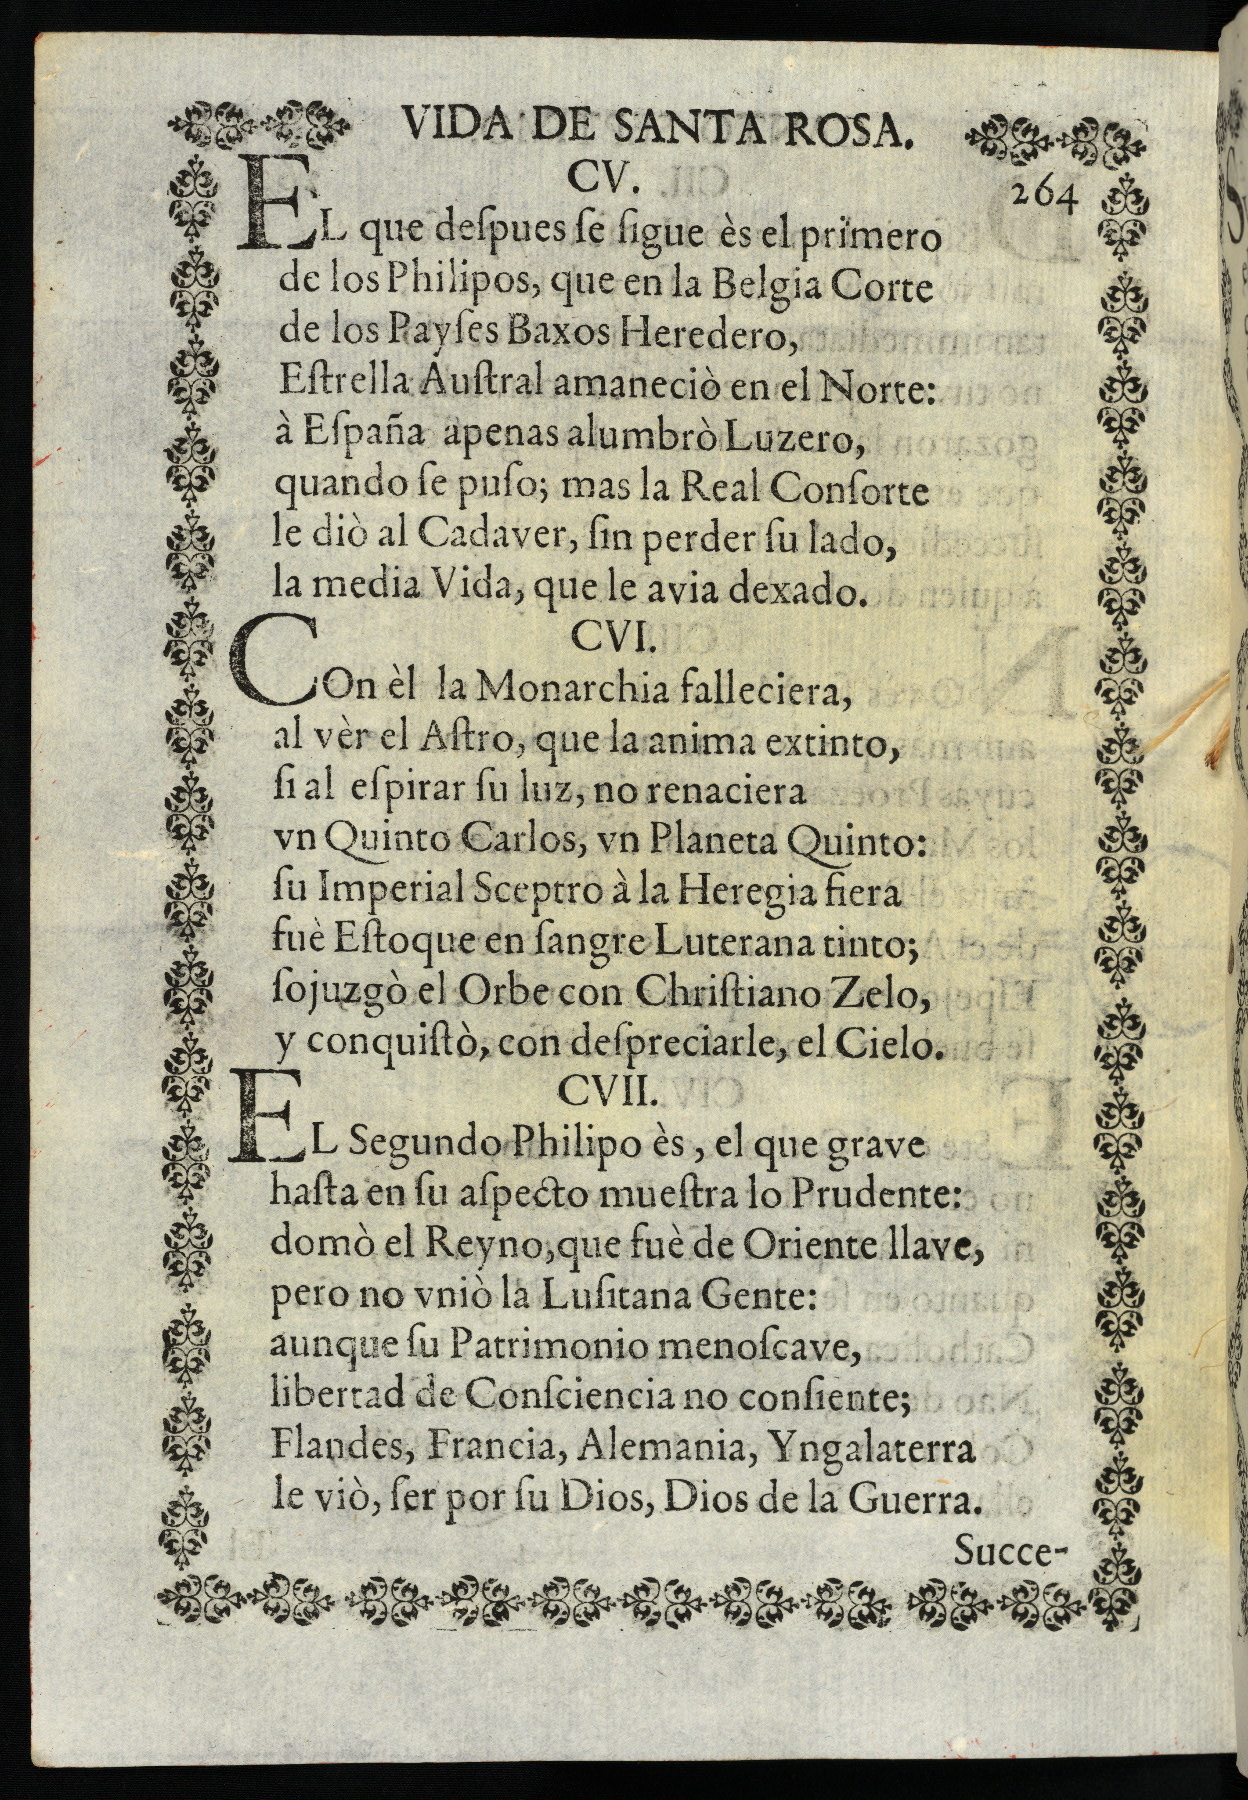 VIDA DE SANTA ROSA.
264
CV.
EL que deſpues ſe ſigue ès el primero
de los Philipos, que en la Belgia Corte
de los Payſes Baxos Heredero,
Eſtrella Auſtral amaneciò en el Norte:
à Eſpaña apenas alumbrò Luzero,
quando ſe puſo; mas la Real Conſorte
le diò al Cadaver, ſin perder ſu lado,
la media Vida, que le avia dexado.
CVI.
COn èl la Monarchia falleciera,
al vèr el Aſtro, que la anima extinto,
ſi al eſpirar ſu luz, no renaciera
vn Quinto Carlos, vn Planeta Quinto:
ſu Imperial Sceptro à la Heregia fiera
fuè Eſtoque en ſangre Luterana tinto;
ſojuzgò el Orbe con Chriſtiano Zelo,
y conquiſtò, con deſpreciarle, el Cielo.
CVII.
EL Segundo Philipo ès, el que grave
haſta en ſu aſpecto mueſtra lo Prudente:
domò el Reyno, que fuè de Oriente llave,
pero no vniò la Luſitana Gente:
aunque ſu Patrimonio menoſcave,
libertad de Conſciencia no conſiente;
Flandes, Francia, Alemania, Yngalaterra
le viò, ſer por ſu Dios, Dios de la Guerra.
Succe-